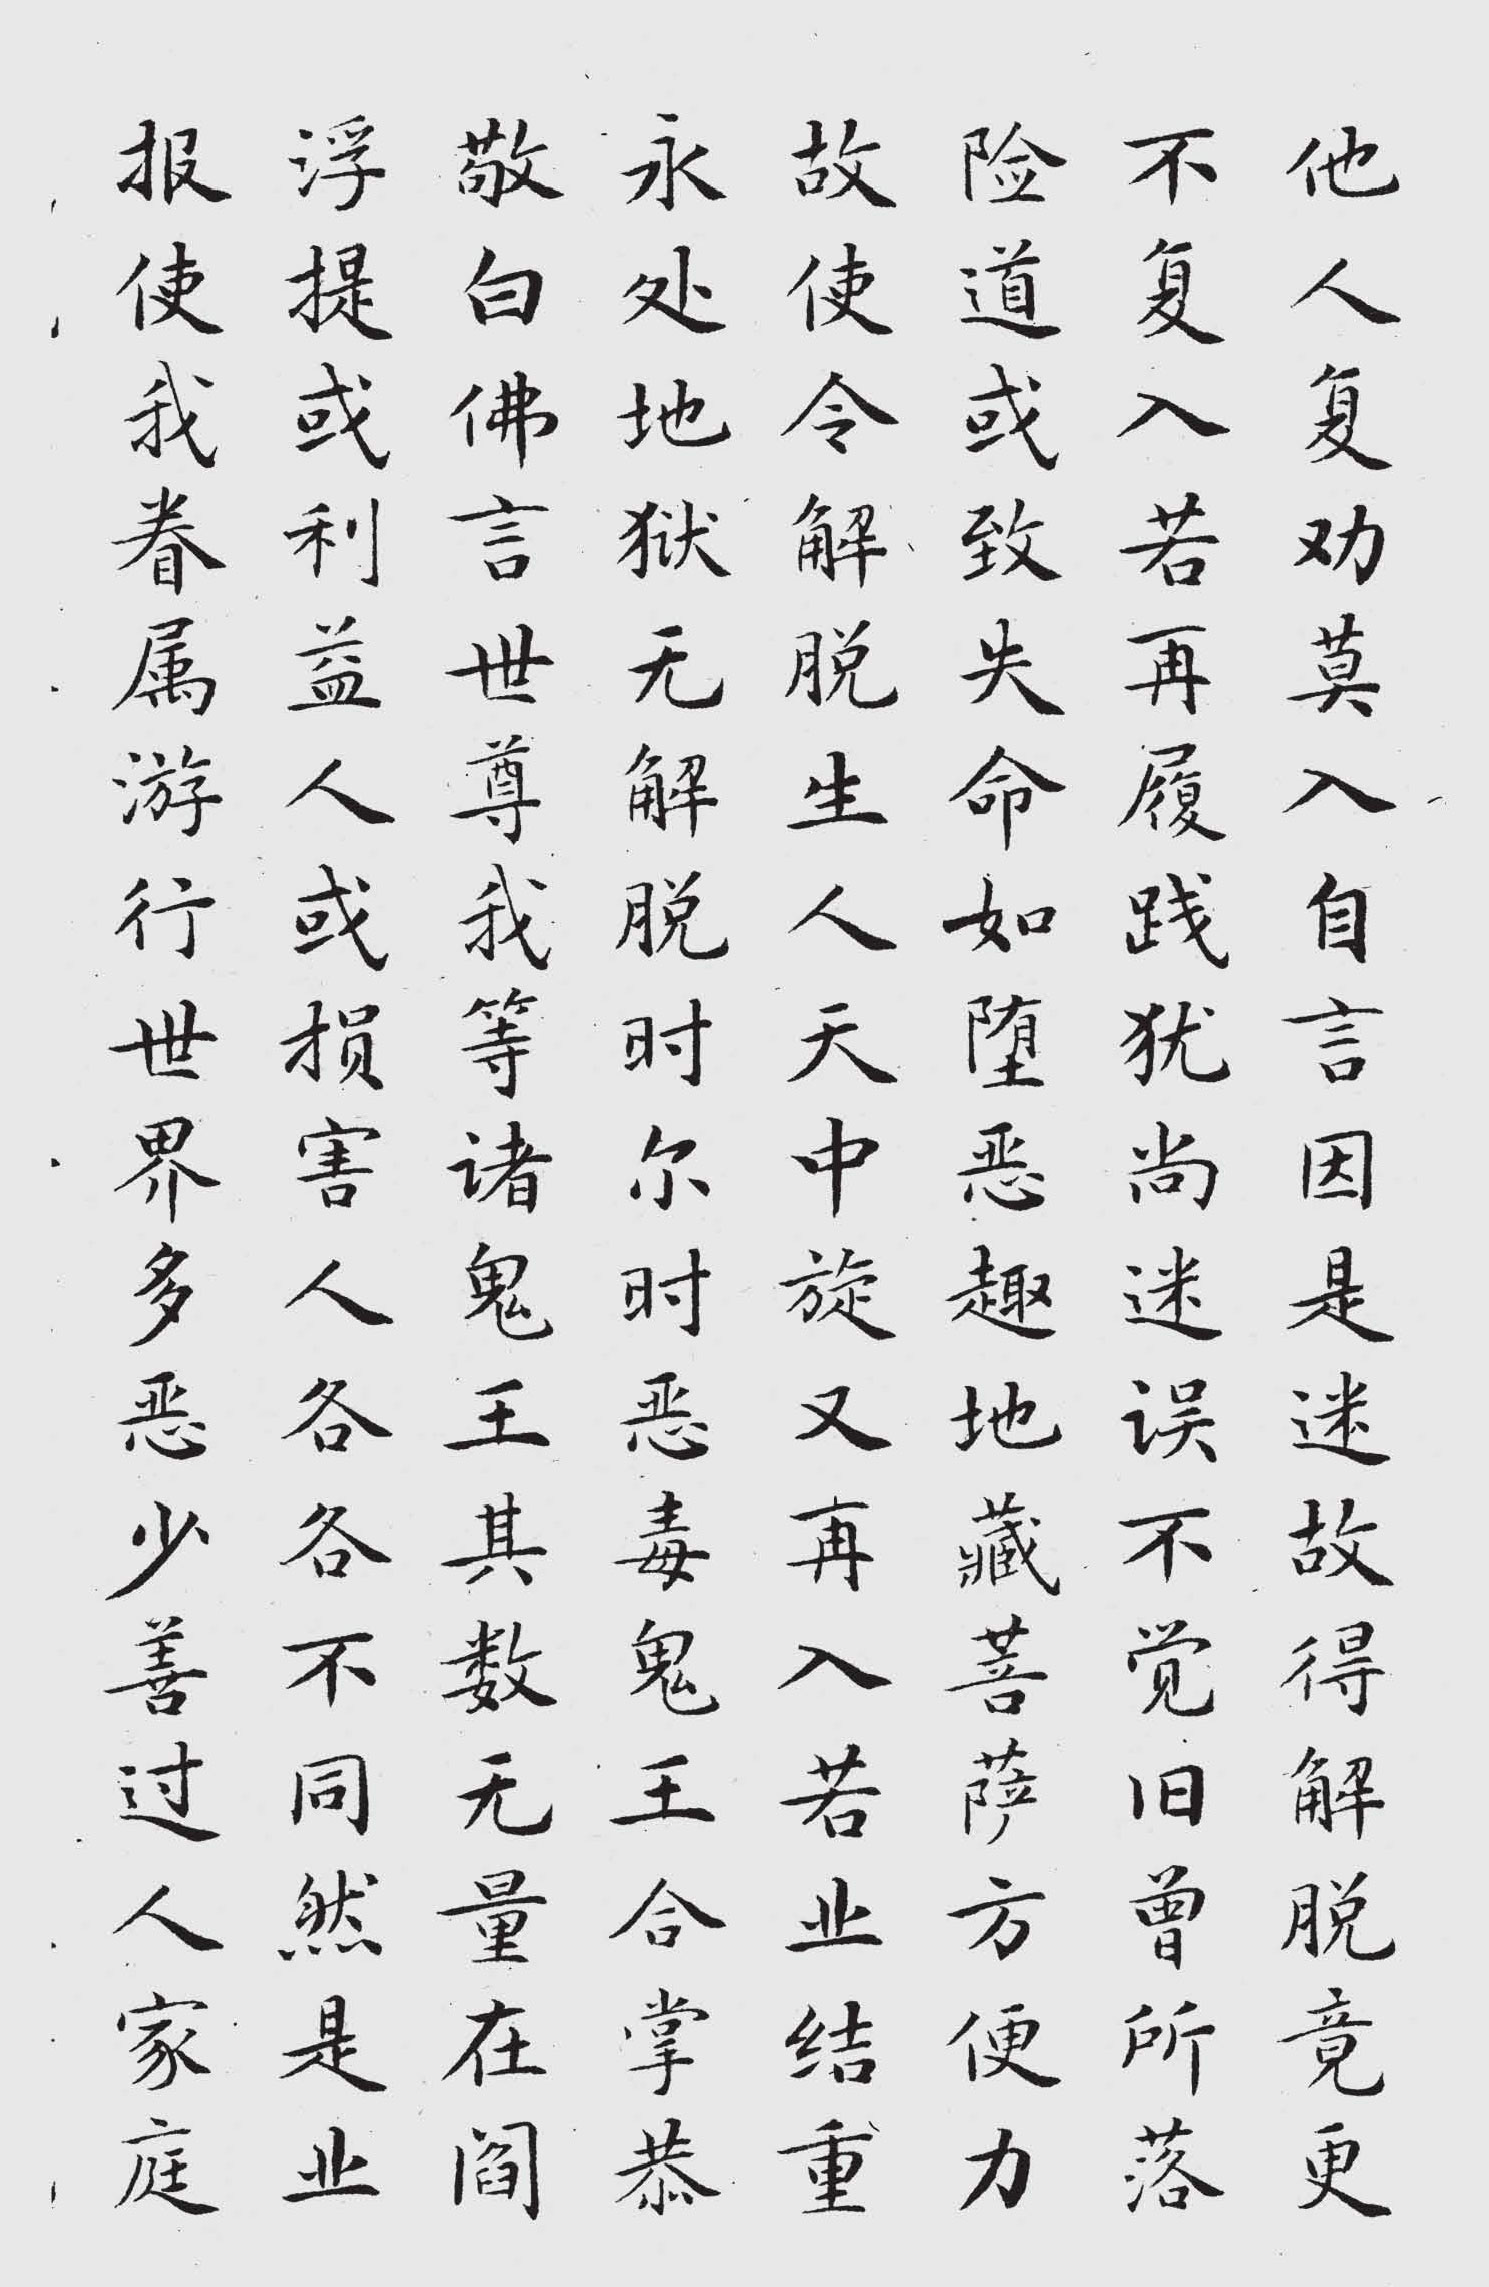 他人复劝莫入自言因是迷故得解脱竟更
不复入若再履践犹尚迷误不觉旧曾所落
险道或致失命如堕恶趣地藏菩萨方便力
故使令解脱生人天中旋又再入若业结重
永处地狱无解脱时尔时恶毒鬼王合掌恭
敬白佛言世尊我等诸鬼王其数无量在阎
浮提或利益人或损害人各各不同然是业
报使我眷属游行世界多恶少善过人家庭